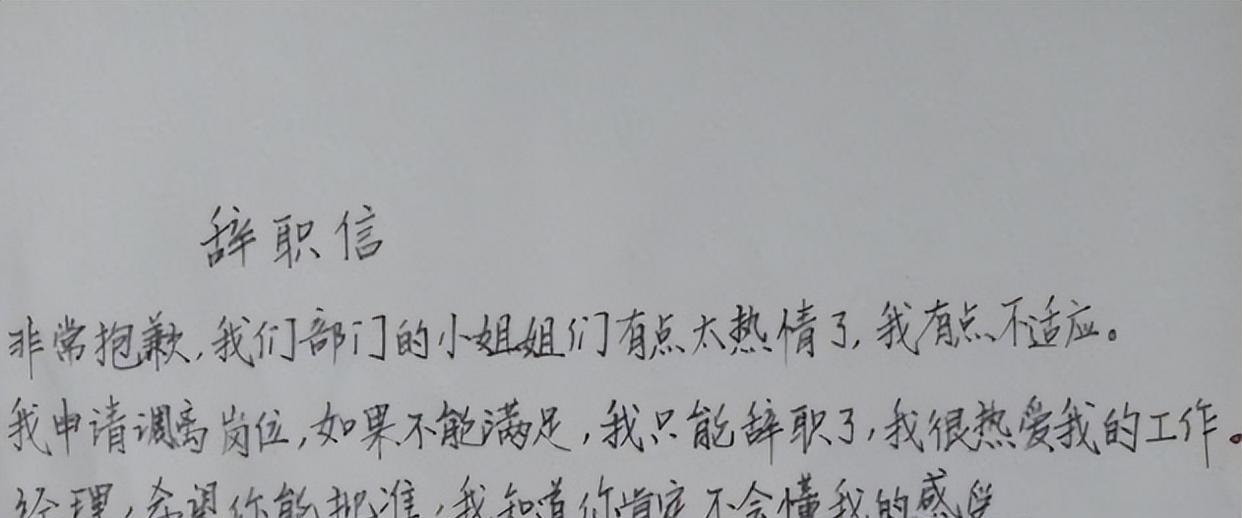 辞职信
非常抱歉,我们部门的小姐姐们有点太热情了,我有点不适应。
我申请调离岗位,如果不能满足,我只能辞职了,我很热爱我的工作。
经理,希望你能批准,我知道你肯定不会懂我的感受